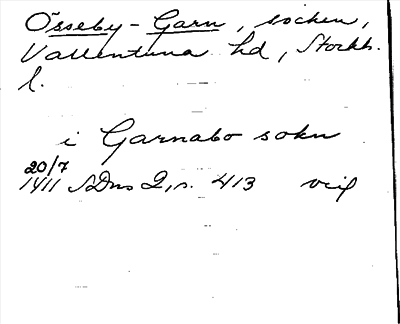 Össeby-Garn, socken,
Vallentuna hd, Stockh.
l.
i Garnabo sokn
20/7
1411 SDns 2, s. 413 vid